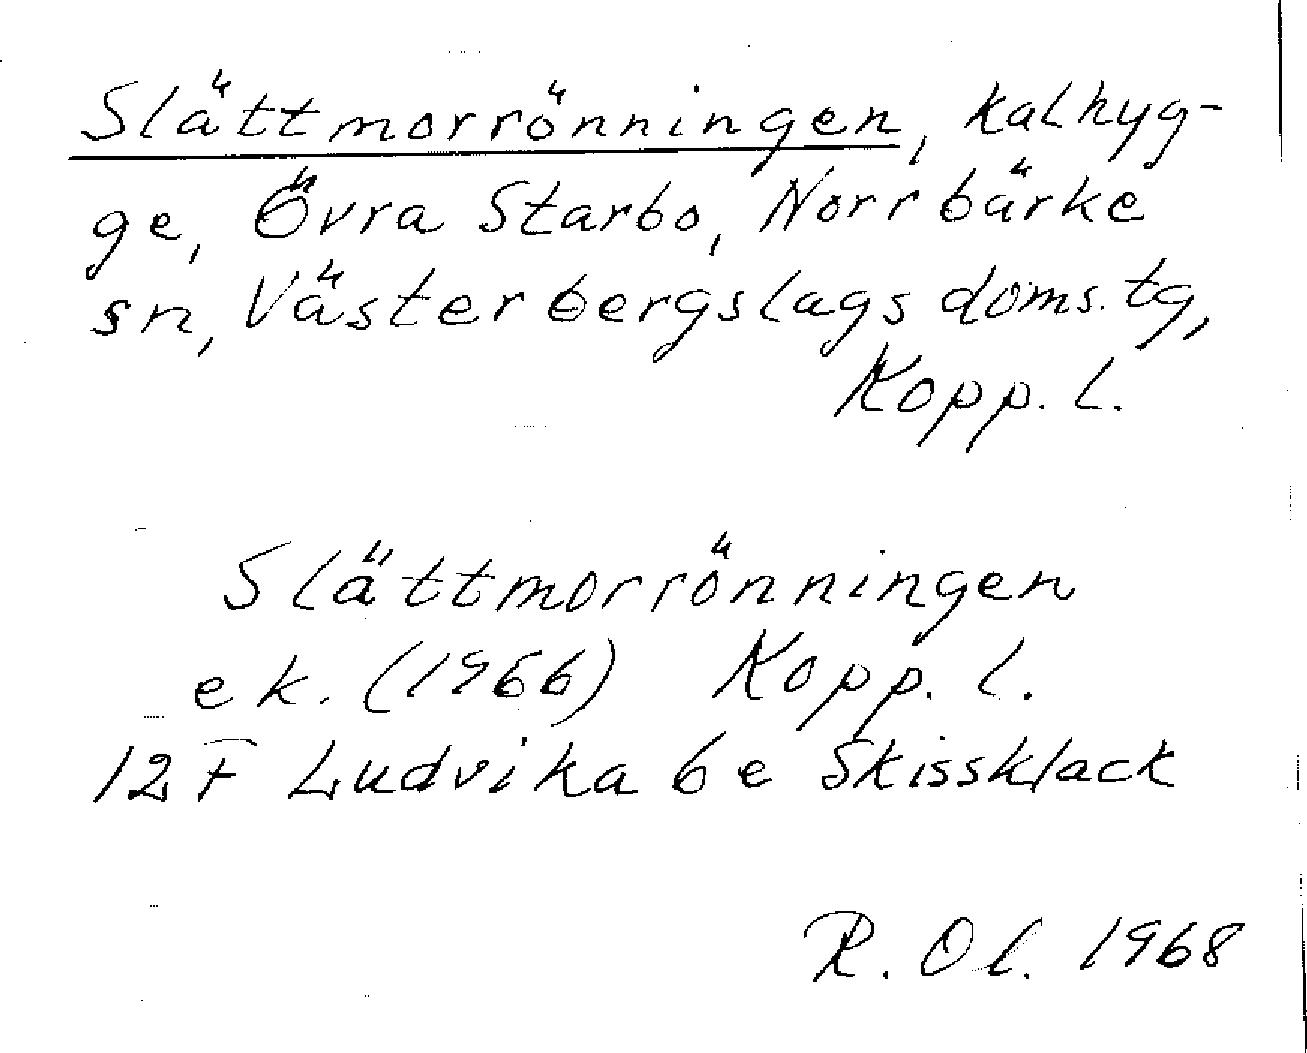 Slättmorrönningen, kalhyg-
ge, Övra Starbo, Norrbärke
sn, Västerbergslags doms. tg,
Kopp. l.
Slättmorrönningen
ek. (1966) Kopp. l.
12F Ludvika 6e Skissklack
R. Ol. 1968